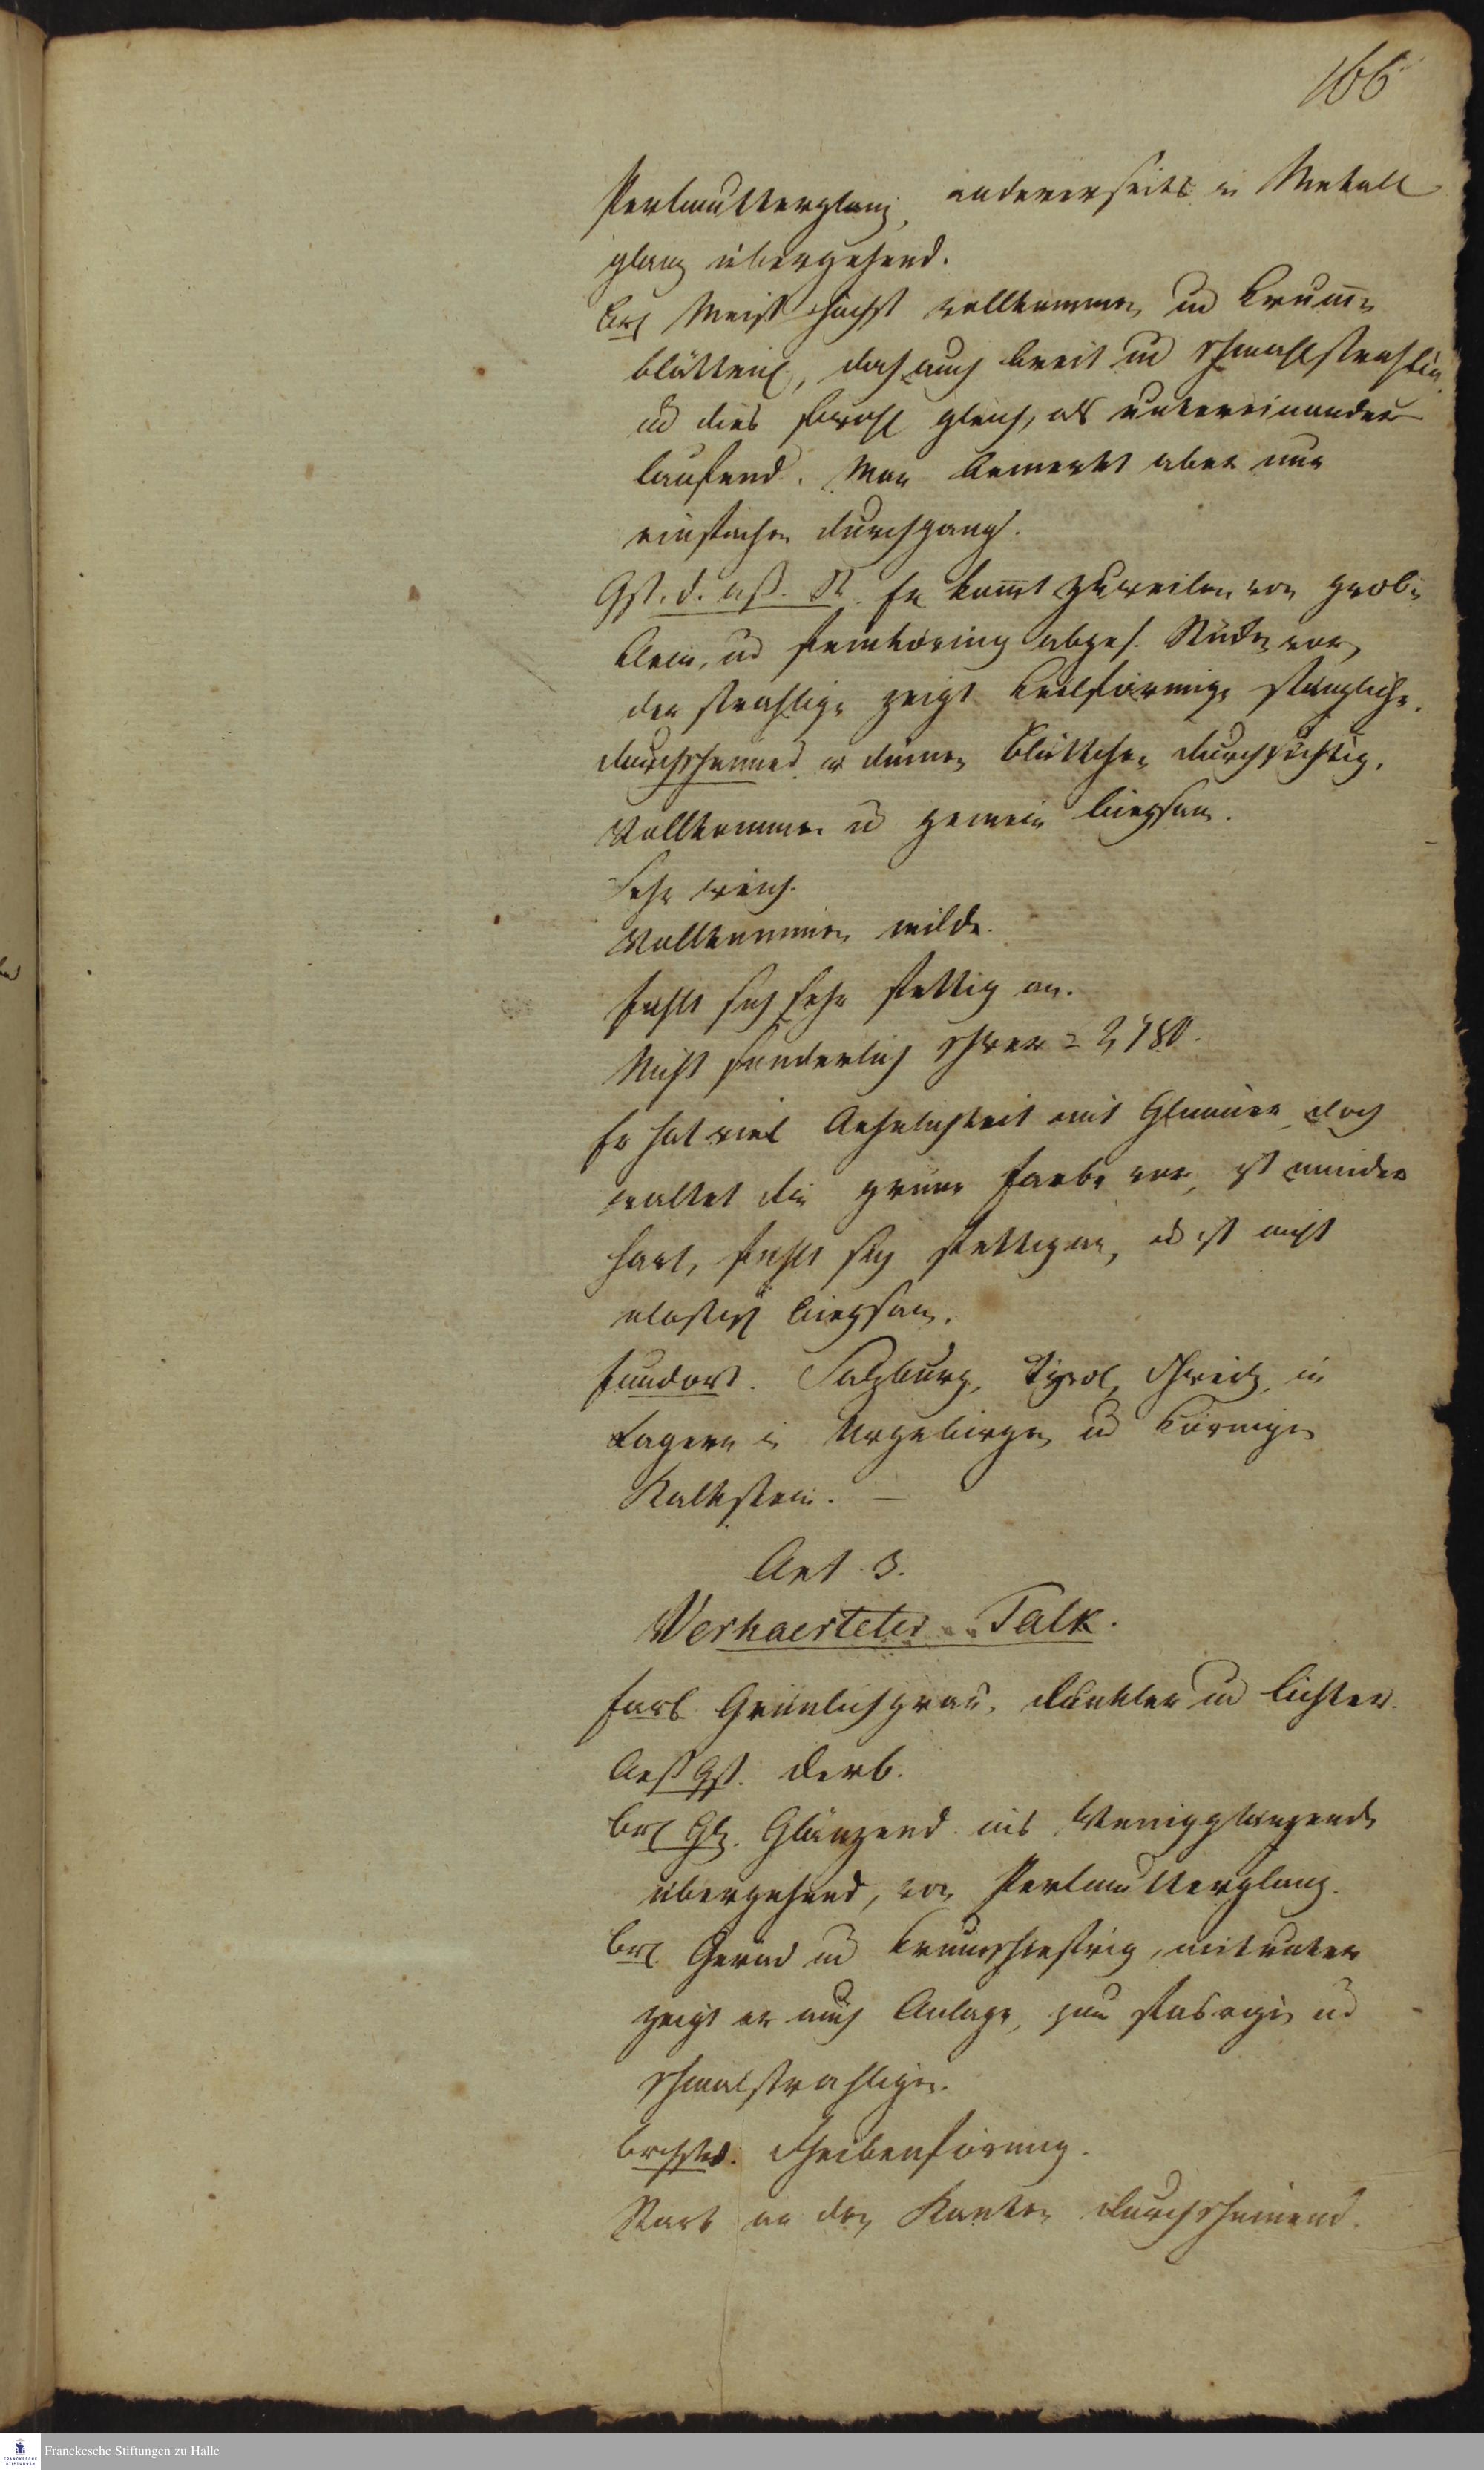 166
Perlmutterglanz, andererseits in Metall
glanz übergehend.
Br Meist höchst vollkommen ud krumm
blättrich, doch auch breit ud schmalstrahlig
ud dies sowohl gleich, als untereinander
laufend. Man bemerkt aber nur
einfachen Durchgang.
Gst. d. aß. St. Er komt zuweilen von grob
klein, ud feinkörnig abges. Stücken vor,
der strahlige zeigt keilförmige stängliche.
Durchscheinend in dünnen Blättchen durchsichtig.
Vollkommen ud gemein biegsam.
Sehr weich.
Vollkommen milde.
Fühlt sich sehr fettig an.
Nicht sonderlich schwer = 2,780.
Er hat viel Aehnlichkeit mit Glimmer, doch
waltet die grüne Farbe vor, ist minder
hart, fühlt sich fettig an, ud ist nicht
elastisch biegsam.
Fundort. Salzburg, Tyrol, Schweitz, in
Lagern in Urgebirgen ud körnigen
Kalkstein. —
Art 3.
Verhaerteter Talk.
Farb Grünlichgrau, dunkler ud lichter.
Aeß Gst. Derb.
Br Glz. Glänzend ins Wenigglänzende
übergehend, von Perlmutterglanz.
Br. Gerad ud krummschiefrig, mitunter
zeigt er auch Anlage, zum fasrigen ud
schmalstrahligen.
Brchst. Scheibenförmig.
Stark an den Kanten durchscheinend.
FRANCKESCHE STIFTUNGEN
Franckesche Stiftungen zu Halle